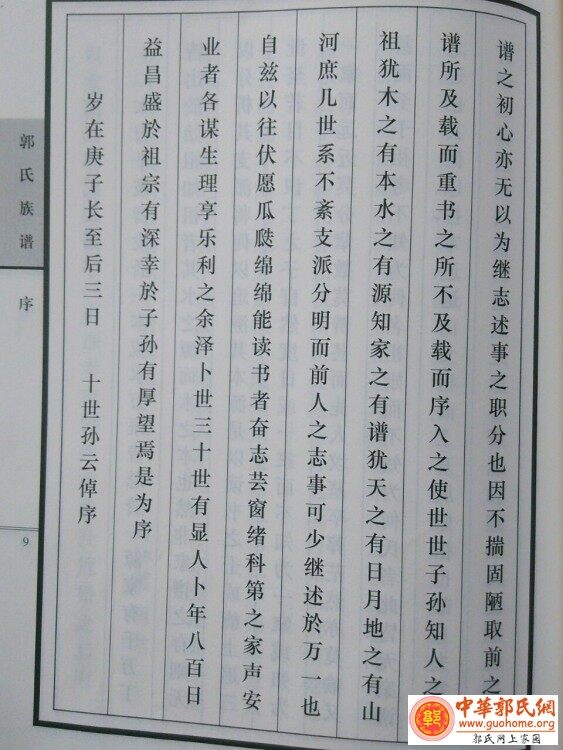 谱之初心亦无以为继志述事之职分也因不揣固陋取前之
谱所及载而重书之所不及载而序入之使世世子孙知人之
祖犹木之有本水之有源知家之有谱犹天之有日月地之有山
河庶几世系不紊支派分明而前人之志事可少继述於万一也
自兹以往伏愿瓜瓞绵绵能读书者奋志芸窗绪科第之家声安
业者各谋生理享乐利之余泽卜世三十世有显人卜年八百日
益昌盛於祖宗有深幸於子孙有厚望焉是为序
岁在庚子长至后三日 十世孙云倬序
郭氏族谱
序
9
郭
中華郭氏網
www.guohome.org
郭氏网上家园